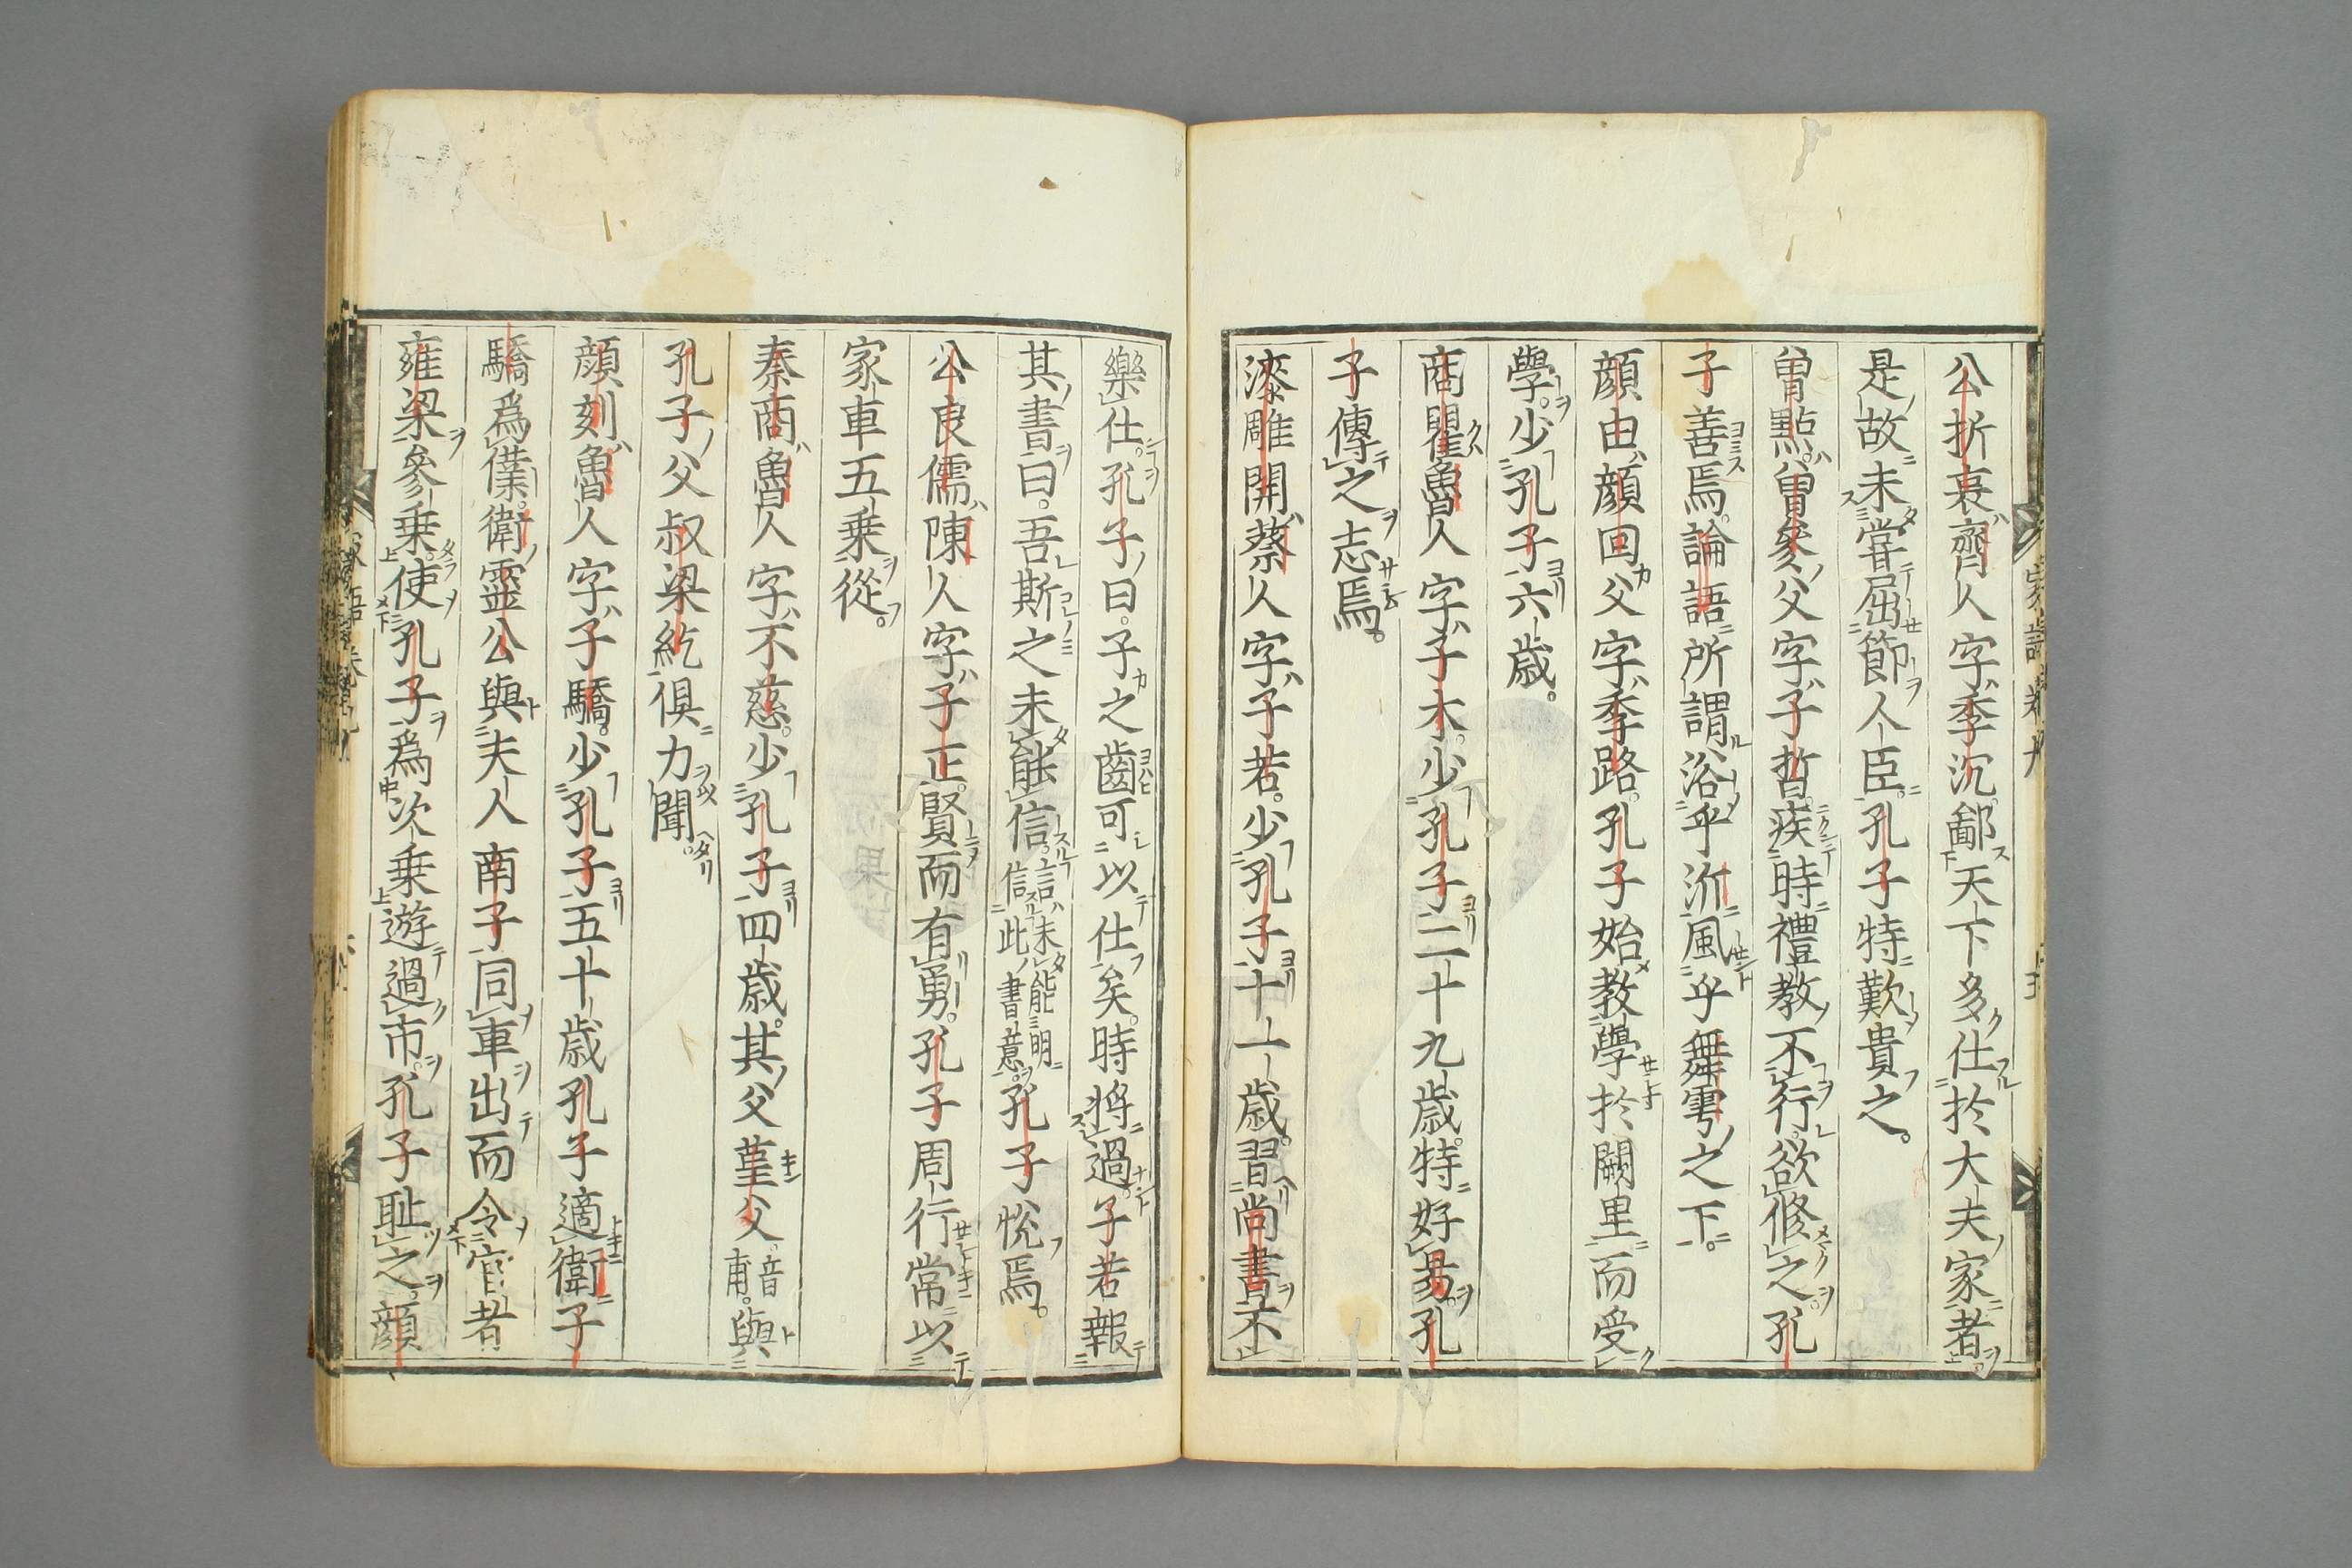 公折哀齊人字季沉鄙天下多仕於大夫家者
是故未嘗屈節人臣孔子特歎貴之。
曾點曾參父字子晳疾時禮教不行欲修之孔
子善焉論語所謂浴乎沂風乎舞雩之下。
顔由顔回父字季路孔子始教學於闕里而受
學。少孔子六歳。
商瞿魯人字子木少孔子二十九歳特好易孔
子傳之志焉。
漆雕開蔡人字子若。少孔子十一歳。習尚書不
樂仕。孔子曰。子之齒可以仕矣。時將過子若報
其書曰。吾斯之未能信。言未能明信此書意。孔子悅焉。
公良儒陳人字子正。賢而有勇。孔子周行常以
家車五乗從。
秦商魯人字不慈。少孔子四歳。其父堇父。音甫。與
孔子父叔梁紇倶力聞。
顔刻魯人字子驕。少孔子五十歳孔子適衛子
驕爲僕。衛靈公與夫人南子同車出而令官者
雍梁參乗。使孔子爲次乗遊過市。孔子耻之。顔